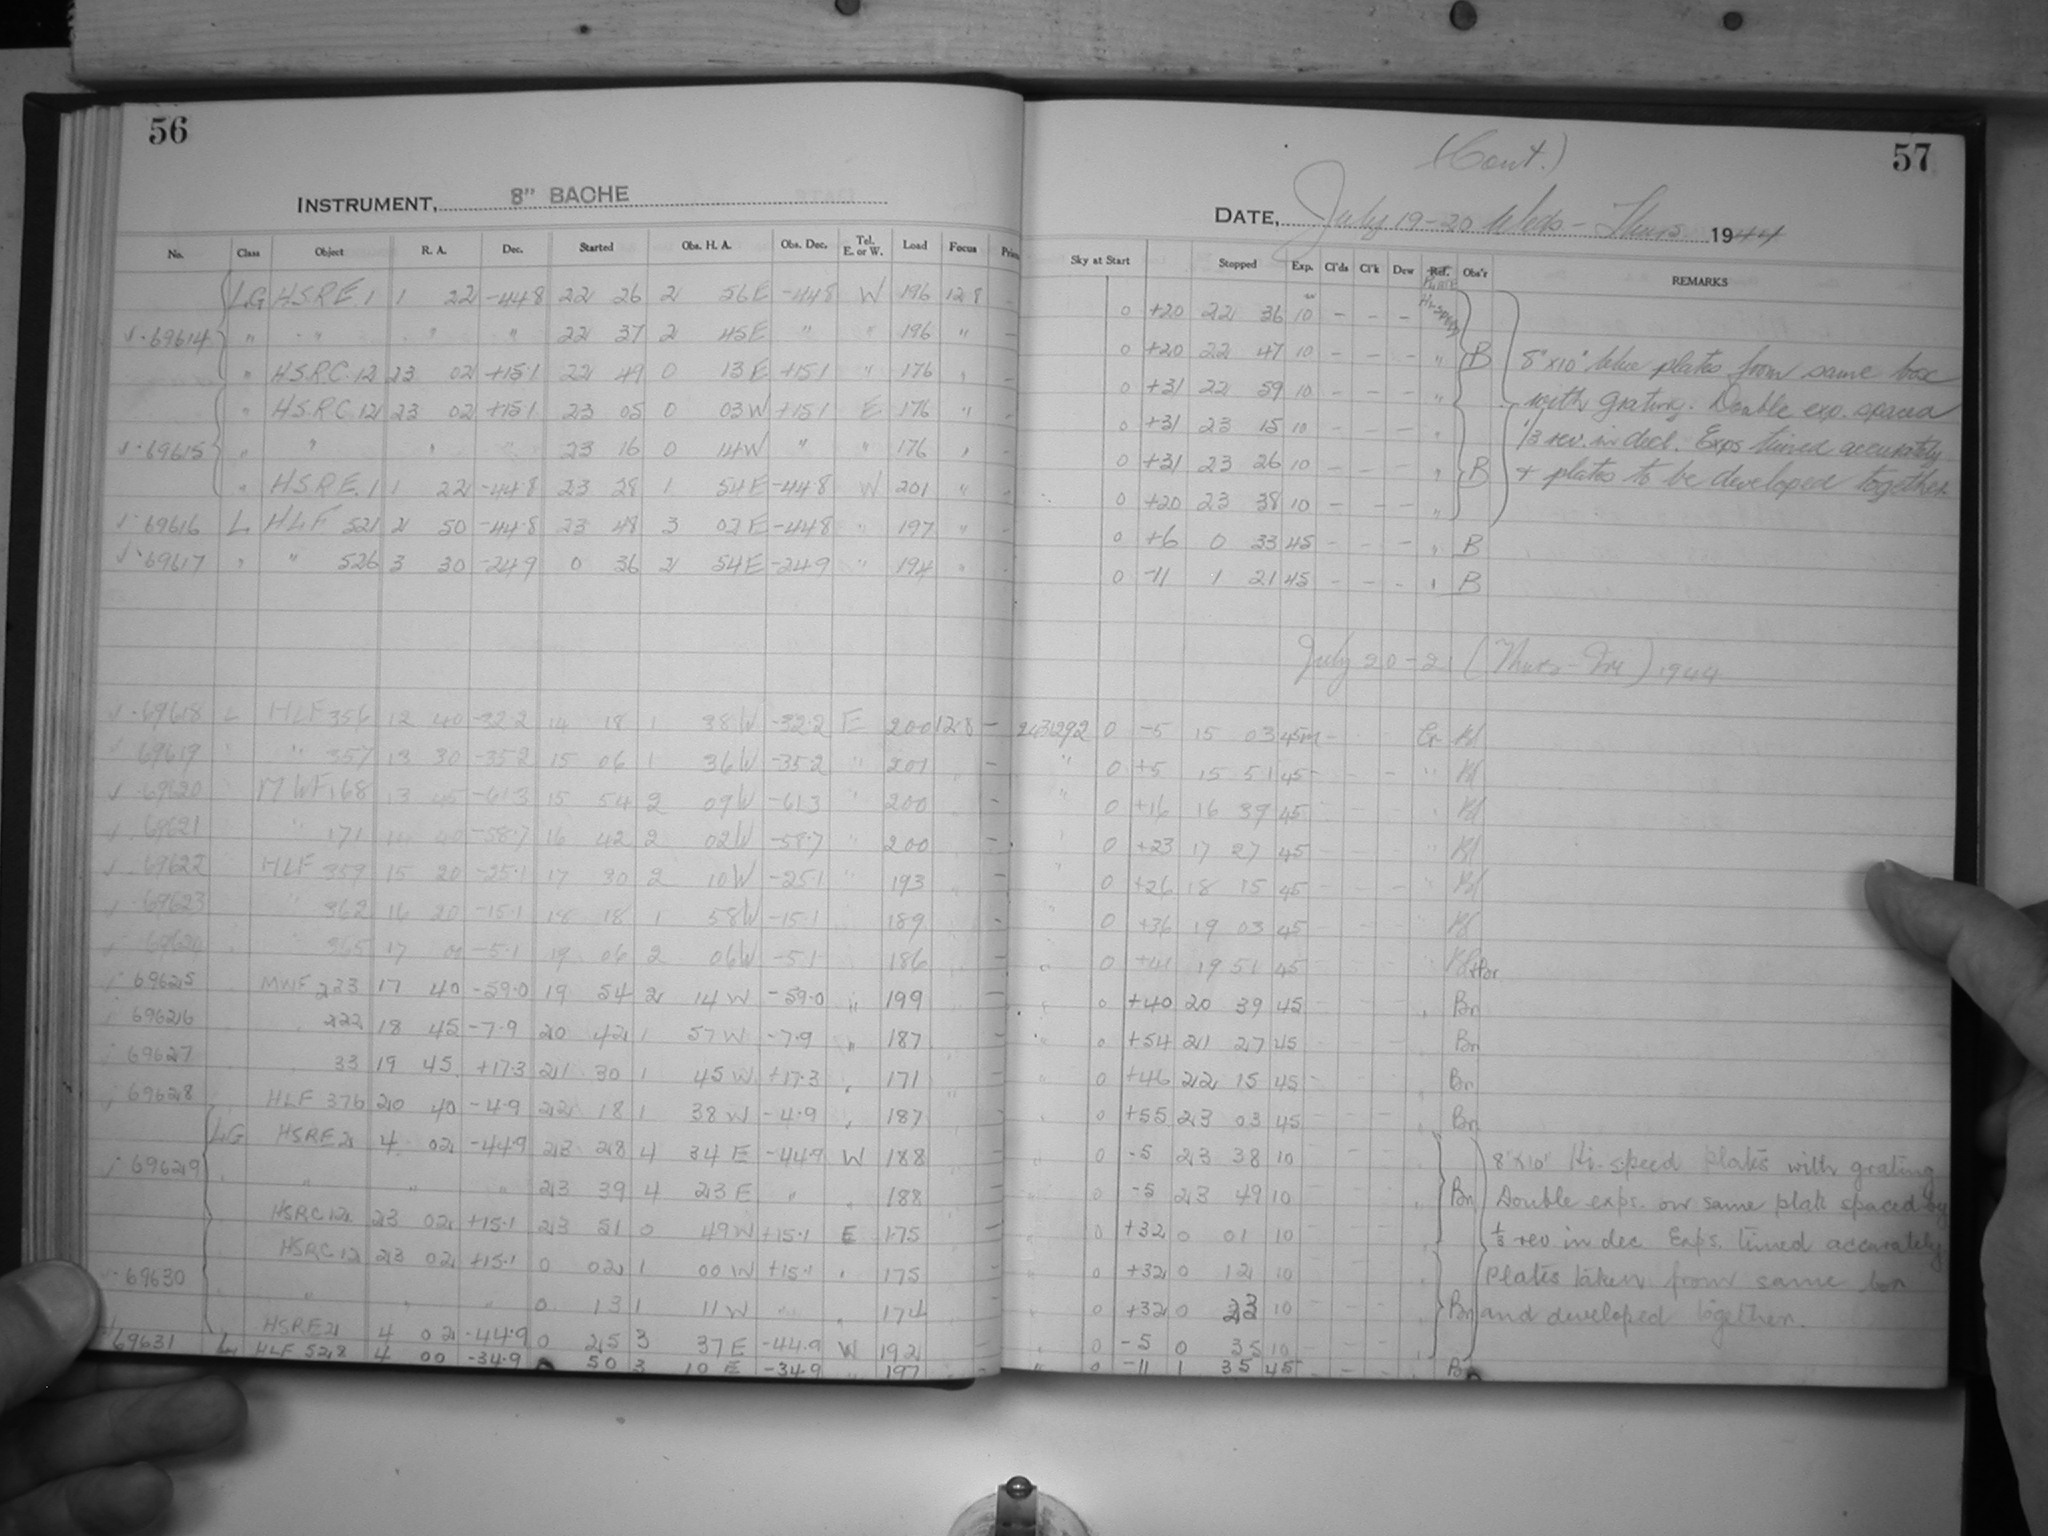 56
INSTRUMENT, 8" BACHE
No. Class Object R. A. Dec. Started Obs. H. A. Obs. Dec. Tel. E. or W. Load Focus
LG HSRE.1 1 22 -44.8 22 26 2 56E -44.8 W 196 12.8
69614 " " " " " 22 37 2 45E " " 196 "
" HSRC.12 23 02 +15.1 22 49 0 13E +15.1 " 176 "
" HSRC.12 23 02 +15.1 23 05 0 03W +15.1 E 176 "
69615 " " " " 23 16 0 14W " " 176 "
" HSRE.1 1 22 -44.8 23 28 1 54E -44.8 W 201 "
69616 L HLF 521 2 50 -44.8 23 48 3 02E -44.8 " 197 "
69617 " " 526 3 30 -24.9 0 36 2 54E -24.9 " 194 "
69618 L HLF 356 12 40 -32.2 14 18 1 38W -32.2 E 200 12.8 -
69619 " 357 13 30 -35.2 15 06 1 36W -35.2 " 201 -
69620 MWF 168 13 45 -61.3 15 54 2 09W -61.3 " 200 -
69621 " 171 -58.7 16 42 2 02W -58.7 " 200 -
69622 HLF 359 15 20 -25.1 17 30 2 10W -25.1 " 193 -
69623 " 362 16 20 -15.1 18 18 1 58W -15.1 189 -
69624 " 365 17 00 -5.1 19 06 2 06W -5.1 186 -
69625 MWF 233 17 40 -59.0 19 54 2 14W -59.0 " 199 -
69626 222 18 45 -7.9 20 42 1 57W -7.9 " 187 -
69627 33 19 45 +17.3 21 30 1 45W +17.3 " 171 -
69628 HLF 376 20 40 -4.9 22 18 1 38W -4.9 " 187 -
LG HSRE 2 4 02 -44.9 23 28 4 34E -44.9 W 188 -
69629 " " " 23 39 4 23E " " 188 -
HSRC 12 23 02 +15.1 23 51 0 49W +15.1 E 175 -
HSRC 12 23 02 +15.1 0 02 1 00W +15.1 " 175 -
69630 " " " 0 13 1 11W " " 174 -
HSRE 2 4 02 -44.9 0 25 3 37E -44.9 W 192 -
69631 L HLF 528 4 00 -34.9 0 50 3 10E -34.9 " 197 -
57
(Cont.)
DATE, July 19-20 Weds - Thurs 1944
Sky at Start Stopped Exp. Cl'ds Cl'k Dew Ref. Obs'r REMARKS
0 +20 22 36 10 - - - Hi-speed
0 +20 22 47 10 - - - " B 8" x 10" blue plates from same box
0 +31 22 59 10 - - - " with grating. Double exp. spaced
0 +31 23 15 10 - - - " 1/3 rev. in decl. Exps timed accurately
0 +31 23 26 10 - - - " B + plates to be developed together
0 +20 23 38 10 - - - "
0 +6 0 33 45 - - - " B
0 -11 1 21 45 - - - " B
July 20-21 (Thurs-Fri) 1944
2431292 0 -5 15 03 45m -
" 0 +5 15 51 45 - - - "
" 0 +16 16 39 45 - - - "
" 0 +23 17 27 45 - - - "
" 0 +26 18 15 45 - - - "
" 0 +36 19 03 45 - - - "
" 0 +41 19 51 45 - - - "
" 0 +40 20 39 45 - - - " Bn
" 0 +54 21 27 45 - - - " Bn
" 0 +46 22 15 45 - - - " Bn
" 0 +55 23 03 45 - - - " Bn
" 0 -5 23 38 10 - - - " 8"x10" Hi-speed plates with grating
" 0 -5 23 49 10 - - - " Bn Double exps. on same plate spaced by
" 0 +32 0 01 10 - - - 1/3 rev in dec. Exps. timed accurately
" 0 +32 0 12 10 - - - " Plates taken from same box
" 0 +32 0 23 10 - - - " Bn and developed together.
" 0 -5 0 35 10 - - - "
" 0 -11 1 35 45 - - - Bn